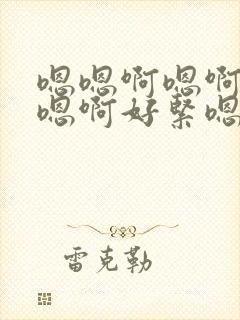 嗯嗯啊嗯啊
嗯啊好紧嗯
雷克勒